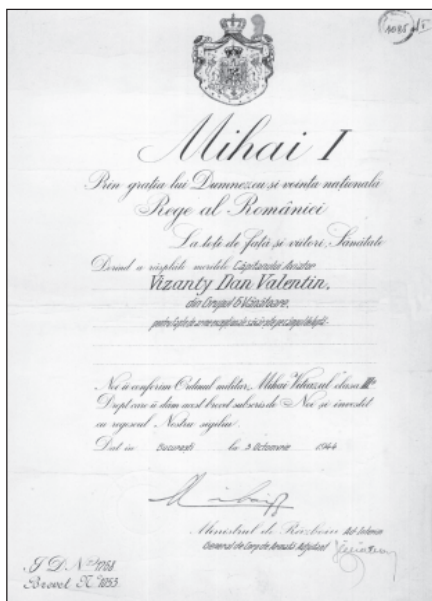 1095
Mihai I
Prin grația lui Dumnezeu și voința națională
Rege al României
La toți de față și viitori, Sănătate
Dorind a răsplăti meritele Căpitanului Aviator
Vizanty Dan Valentin,
din Grupul 6 Vânătoare,
pentru fapte de arme excepționale săvârșite pe câmpul de luptă.
Noi îi conferim Ordinul militar „Mihai Viteazul" clasa III-a
Drept care îi dăm acest brevet subscris de Noi și învestit
cu regescul Nostru sigiliu.
Dat în București la 3 Octomvrie 1944
Mihai
Ministrul de Războiu Ad-Interim
General de Corp de Armată Adjutant
I.D. No. 1768
Brevet No. 1053